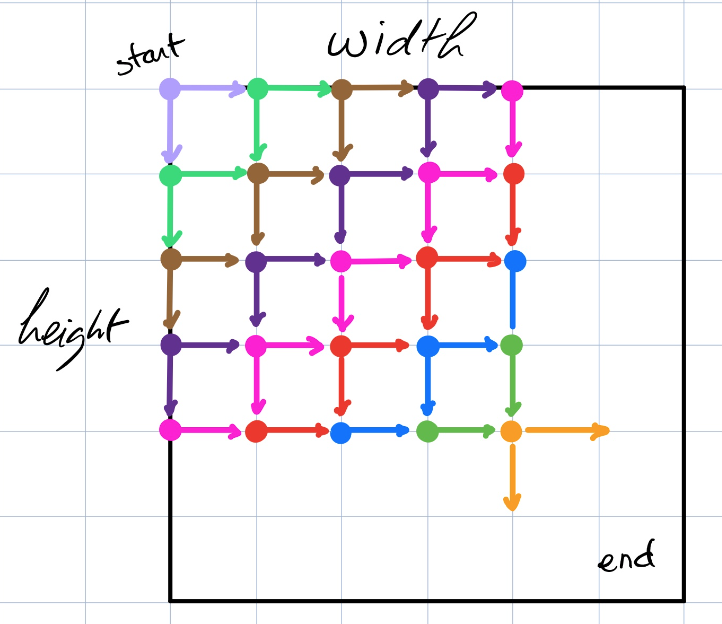 start
width
height
end